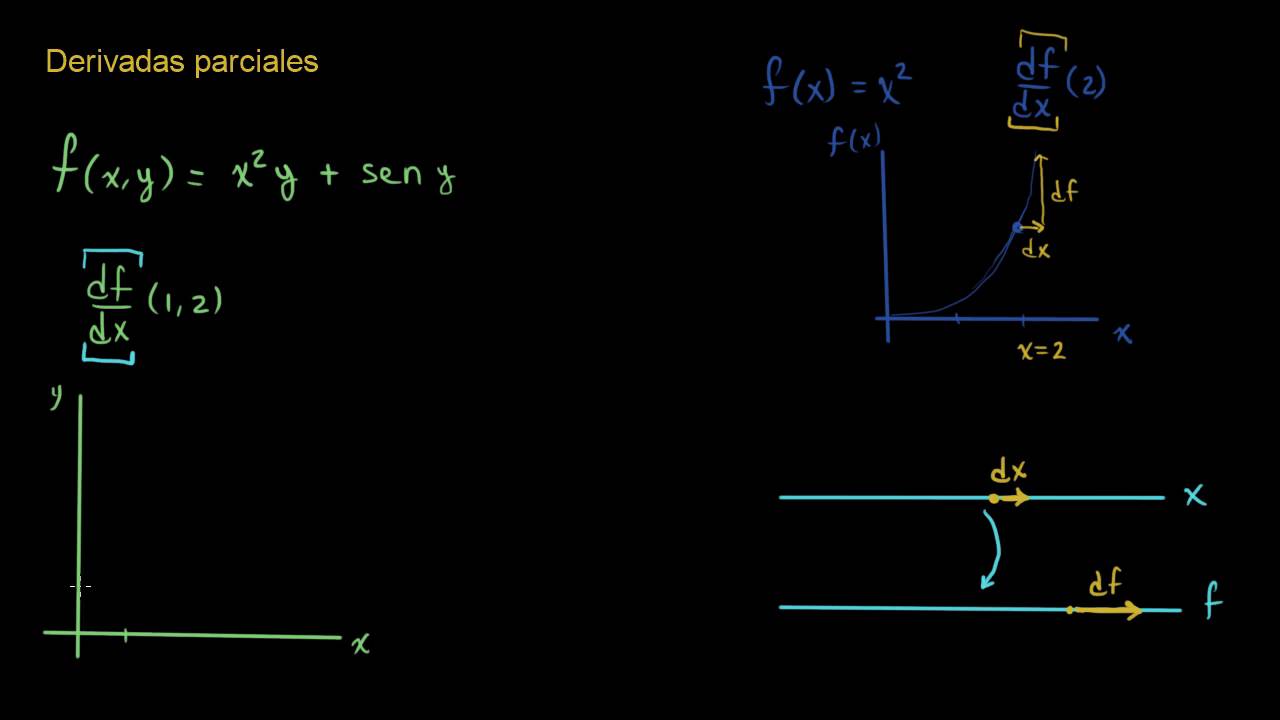 Derivadas parciales
f(x,y) = x²y + sen y
df/dx (1,2)
y
x
f(x) = x²
df/dx (2)
f(x)
df
dx
x
x=2
dx
x
df
f